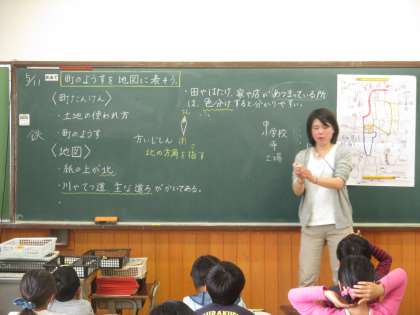 5/11
町のようすを地図に表そう。
〈町たんけん〉
・土地の使われ方
・町のようす
〈地図〉
・紙の上が北
・川やてつ道 主な道ろがかいてある。
・田やはたけ、家や店があつまっている所
は、色分けすると分かりやすい。
方いじしん
北の方角を指す
中
学校
寺
工場